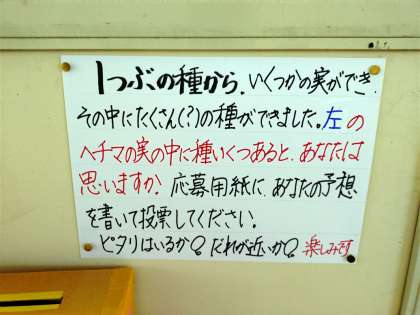 1つぶの種から、いくつかの実ができ、
その中にたくさん(?)の種ができました。左の
ヘチマの実の中に種いくつあると、あなたは
思いますか? 応募用紙に、あなたの予想
を書いて投票してください。
ピタリはいるか? だれが近いか? 楽しみです